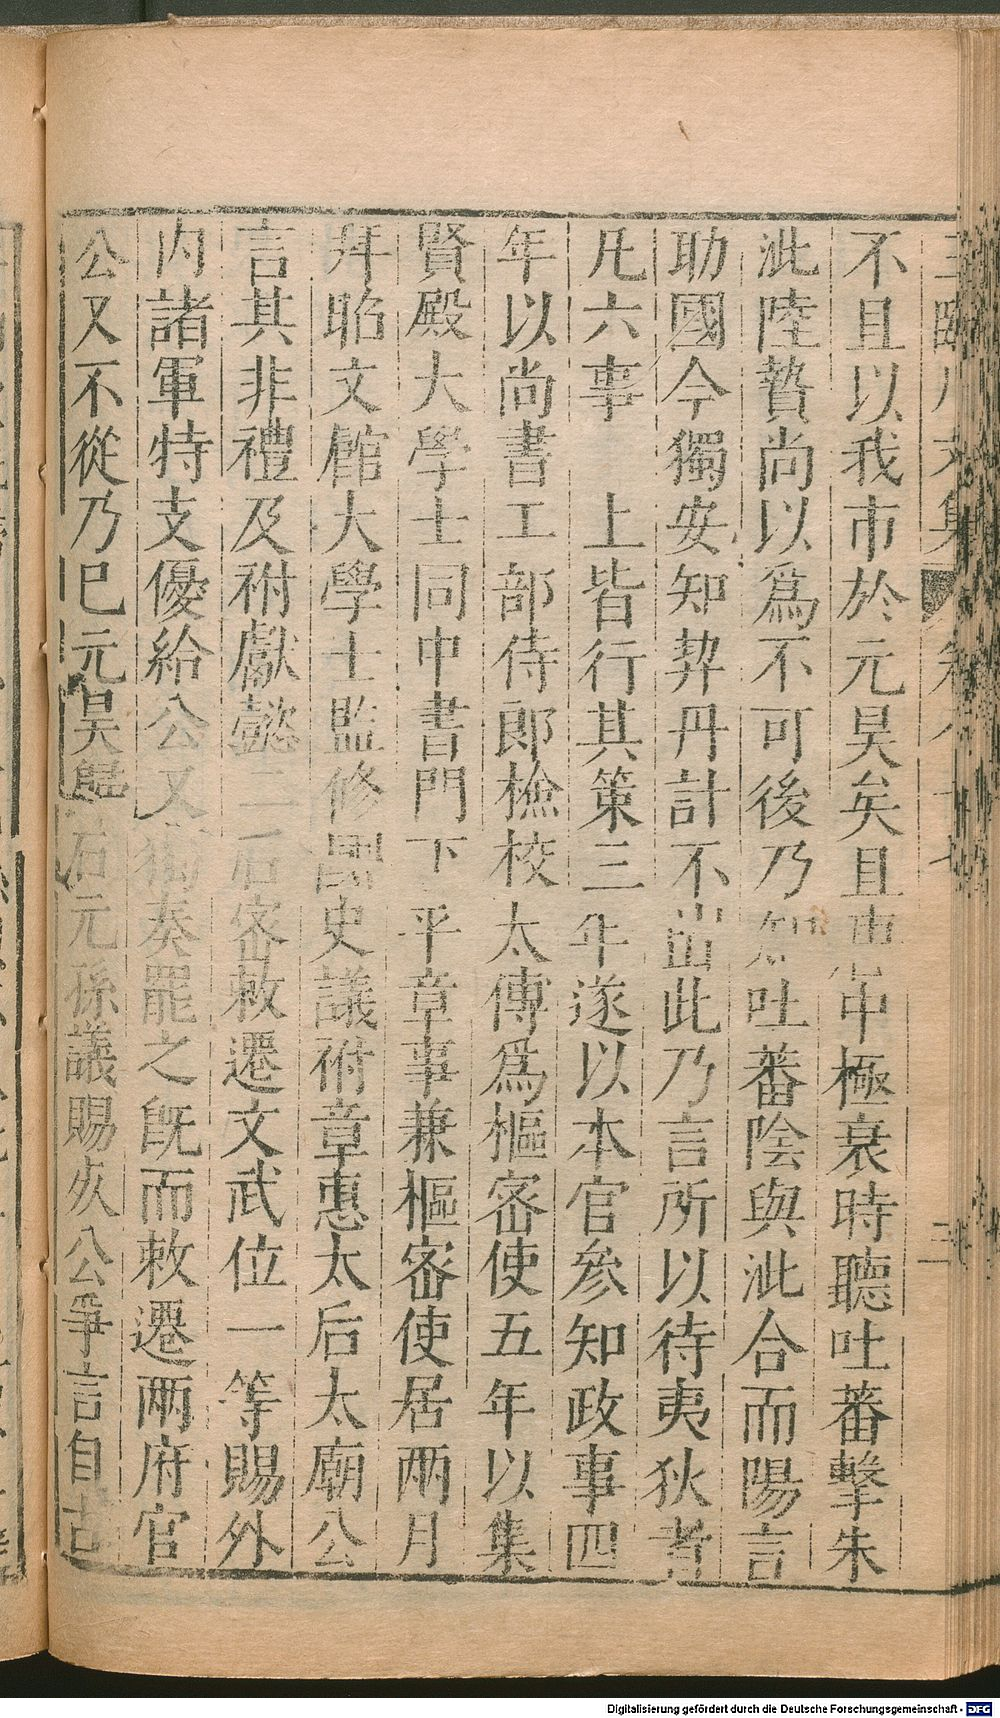 王臨川文集 卷八十七 二
不且以我市於元昊矣且唐中極衰時聽吐蕃擊朱
泚陸贄尚以爲不可後乃知吐蕃陰與泚合而陽言
助國今獨安知契丹計不出此乃言所以待夷狄者
凡六事 上皆行其策三年遂以本官叅知政事四
年以尚書工部侍郎檢校太傅爲樞密使五年以集
賢殿大學士同中書門下平章事兼樞密使居兩月
拜昭文館大學士監修國史議祔章惠太后太廟公
言其非禮及祔獻懿二后密敕遷文武位一等賜外
內諸軍特支優給公又獨奏罷之旣而敕遷兩府官
公又不從乃已元昊歸石元孫議賜死公爭言自古
Digitalisierung gefördert durch die Deutsche Forschungsgemeinschaft - DFG